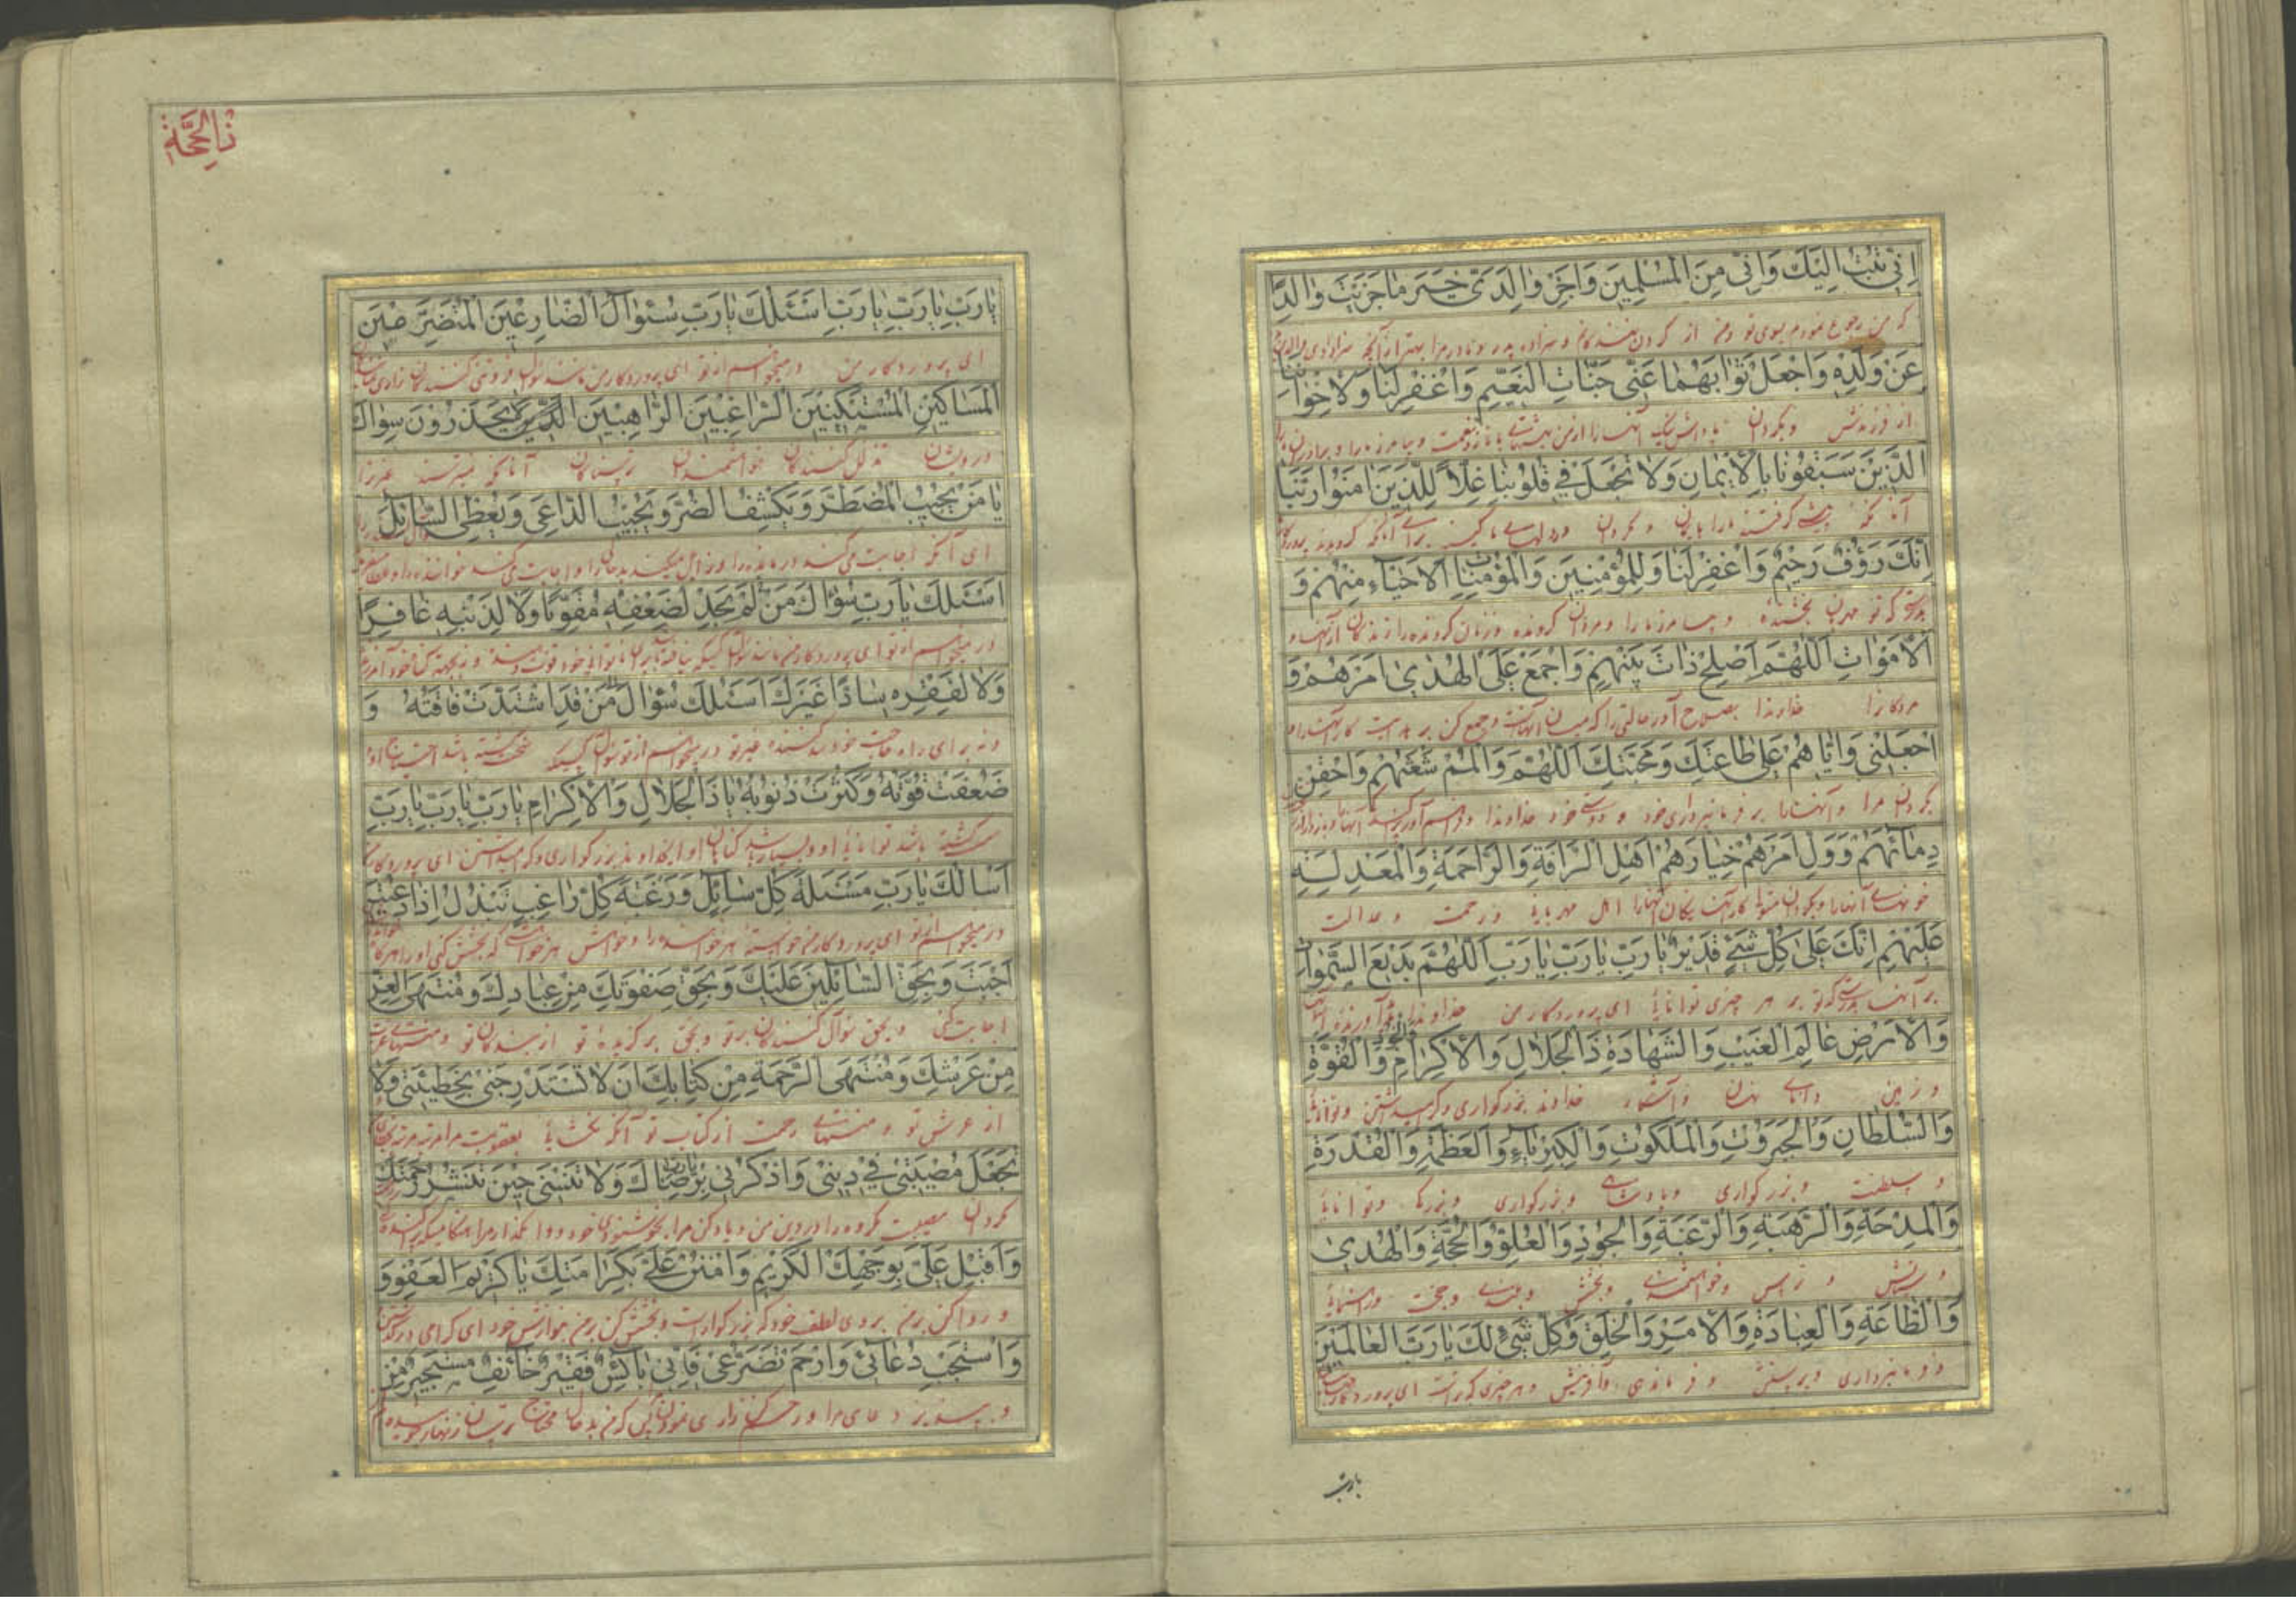 اِنّى تُبْتُ اِلَيْكَ وَاِنّى مِنَ الْمُسْلِمينَ وَاجْزِ والِدَىَّ خَيْرَ ماجَزَيْتَ والِدًا
که من رجوع نمودم بسوی تو و من از گردن نهندگانم و سزاده پدر و مادر مرا بهتر از آنچه سزا دادی والدین
عَنْ وَلَدِهِ وَاجْعَلْ ثَوابَهُما عَنّى جَنّاتِ النَّعيمِ وَاغْفِرْلَنا وَلِاخْوانِنَا
از فرزندش و بگردان پاداش نیک آنها را از من بهشتهای با ناز و نعمت و بیامرز ما را و برادران ما را
الَّذينَ سَبَقُونا بِالْاِيمانِ وَلا تَجْعَلْ فى قُلُوبِنا غِلاًّ لِلَّذينَ امَنُوا رَبَّنا
آنانکه پیشی گرفتند ما را بایمان و مگردان در دلهای ما کینه برای آنانکه گرویدند
اِنَّكَ رَؤُفٌ رَحيمٌ وَاغْفِرْلَنا وَلِلْمُؤْمِنينَ وَالْمُؤْمِناتِ الْاَحْياءِ مِنْهُمْ وَ
بدرستیکه تو مهربان بخشنده و بیامرز ما را و مردان گرونده و زنان گرونده را زندگان از آنها و
الْاَمْواتِ اَللّهُمَّ اَصْلِحْ ذاتَ بَيْنِهِمْ وَاجْمَعْ عَلَى الْهُدى اَمْرَهُمْ وَ
مردگان را خداوندا بصلاح آور حالتی را که میان آنهاست و جمع کن بر هدایت کار آنها را و
اجْعَلْنى وَاِيّاهُمْ عَلى طاعَتِكَ وَمَحَبَّتِكَ اَللّهُمَّ وَالْمُمْ شَعَثَهُمْ وَاحْقِنْ
بگردان مرا و آنها را بر فرمانبرداری خود و دوستی خود خداوندا و فراهم آور
دِمائَهُمْ وَوَلِّ اَمْرَهُمْ خِيارَهُمْ اَهْلِ الرَّاْفَةِ وَالرَّحْمَةِ وَالْمَعْدِلَةِ
خونهای آنها را و بگردان متولی کار آنها نیکان آنها را اهل مهربانی و رحمت و عدالت
عَلَيْهِمْ اِنَّكَ عَلى كُلِّ شَىْءٍ قَديرٌ يارَبِّ يارَبِّ يارَبِّ اَللّهُمَّ بَديعَ السَّمواتِ
بر آنها بدرستیکه تو بر هر چیزی توانائی ای پروردگار من خداوندا
وَالْاَرْضِ عالِمَ الْغَيْبِ وَالشَّهادَةِ ذَا الْجَلالِ وَالْاِكْرامِ وَالْقُوَّةِ
و زمین دانای نهان و آشکار خداوند بزرگواری و گرامی داشتن و توانائی
وَالسُّلْطانِ وَالْجَبَرُوتِ وَالْمَلَكُوتِ وَالْكِبْرِياءِ وَالْعَظَمَةِ وَالْقُدْرَةِ
و سلطنت و بزرگواری و پادشاهی و بزرگواری و بزرگی و توانائی
وَالْمِدْحَةِ وَالرَّهْبَةِ وَالرَّغْبَةِ وَالْجُودِ وَالْعُلُوِّ وَالْحُجَّةِ وَالْهُدى
و ستایش و ترس و خواهشمندی و بخشش و بلندی و حجت و رهنمائی
وَالطّاعَةِ وَالْعِبادَةِ وَالْاَمْرِ وَالْخَلْقِ وَكُلُّ شَىْءٍ لَكَ يا رَبَّ الْعالَمينَ
و فرمانبرداری و پرستش و فرماندهی و آفرینش و هر چیزی که تراست ای پروردگار
یا رب
يارَبِّ يارَبِّ يارَبِّ اَسْئَلُكَ يارَبِّ سُؤالَ الضّارِعينَ الْمُتَضَرِّعينَ
ای پروردگار من درمیخواهم از تو ای پروردگار من مانند سؤال فروتنی کنندگان زاری
الْمَساكينِ الْمُسْتَكينينَ الرّاغِبينَ الرّاهِبينَ الَّذينَ لا يَحْذَرُونَ سِواكَ
درویشان تذلل کنندگان خواهشمندان ترسناکان آنانکه نمیترسند غیر ترا
يا مَنْ يُجيبُ الْمُضْطَرَّ وَيَكْشِفُ الضُّرَّ وَيُجيبُ الدّاعِىَ وَيُعْطِى السّائِلَ
ای آنکه اجابت میکند درمانده را و زایل میکند بدحالی را و اجابت میکند خواننده را و عطا
اَسْئَلُكَ يارَبِّ سُؤالَ مَنْ لَمْ يَجِدْ لِضَعْفِهِ مُقَوِّيًا وَلا لِذَنْبِهِ غافِرًا
درمیخواهم از تو ای پروردگار من مانند سؤال کسیکه نیافته باشد برای ناتوانی خود قوت دهنده و نه بجهت گناه خود آمرزنده
وَلا لِفَقْرِهِ سادًّا غَيْرَكَ اَسْئَلُكَ سُؤالَ مَنْ قَدِ اشْتَدَّتْ فاقَتُهُ وَ
و نه برای راه حاجت خود سد کننده غیر تو درمیخواهم از تو سؤال کسیکه سخت گشته باشد احتیاج او
ضَعُفَتْ قُوَّتُهُ وَكَثُرَتْ ذُنُوبُهُ يا ذَا الْجَلالِ وَالْاِكْرامِ يارَبِّ يارَبِّ يارَبِّ
گشته باشد توانائی او و بسیار شد گناهان او ای خداوند بزرگواری و گرامی داشتن ای پروردگار
اَسْالُكَ يارَبِّ مَسْئَلَةَ كُلِّ سائِلٍ وَرَغْبَةَ كُلِّ راغِبٍ تَبْذُلُ اِذا دُعيتَ
درمیخواهم از تو ای پروردگار من خواسته هر خواهنده را و خواهش هر خواهشمندی که بخشش کنی او را هرگاه
اَجَبْتَ وَبِحَقِّ السّائِلينَ عَلَيْكَ وَبِحَقِّ صَفْوَتِكَ مِنْ عِبادِكَ وَمُنْتَهَى الْعِزِّ
اجابت کنی و بحق سؤال کنندگان بر تو و بحق برگزیده تو از بندگان تو و منتهای عزت
مِنْ عَرْشِكَ وَمُنْتَهَى الرَّحْمَةِ مِنْ كِتابِكَ اَنْ لا تَسْتَدْرِجَنى بِخَطيئَتى وَلا
از عرش تو و منتهای رحمت از کتاب تو آنکه
تَجْعَلْ مُصيبَتى فى دينى وَاذْكُرْنى بِرِضاكَ وَلا تَنْسَنى حينَ تَنْشُرُ رَحْمَتَكَ
مگردان مصیبت مرا در دین من و یاد کن مرا بخوشنودی خود و وا مگذار مرا هنگامیکه
وَاَقْبِلْ عَلَىَّ بِوَجْهِكَ الْكَريمِ وَامْنُنْ عَلَىَّ بِكَرامَتِكَ يا كَريمَ الْعَفْوِ وَ
و رو کن بر من بروی لطف خود که بزرگوار است و بخشش کن بر من بنوازش خود ای گرامی
وَاسْتَجِبْ دُعائى وَارْحَمْ تَضَرُّعى فَاِنّى بائِسٌ فَقيرٌ خائِفٌ مُسْتَجيرٌ مِنْ
و بپذیر دعای مرا و رحم کن زاری نمودن